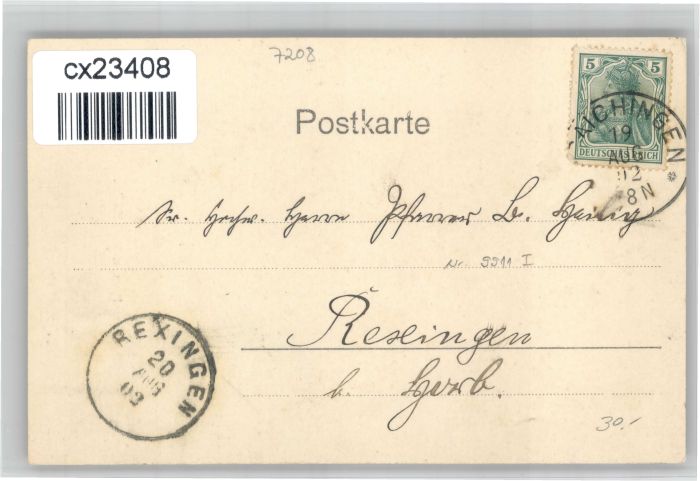 cx23408
7208
Postkarte
5 5
DEUTSCHES REICH
AICHINGEN
19
AUG
02
8N
Sr. Hochw. Herrn Pfarrer B.
Nr. 9911 I
Rexingen
b. Horb.
REXINGEN
20
AUG
02
30.-